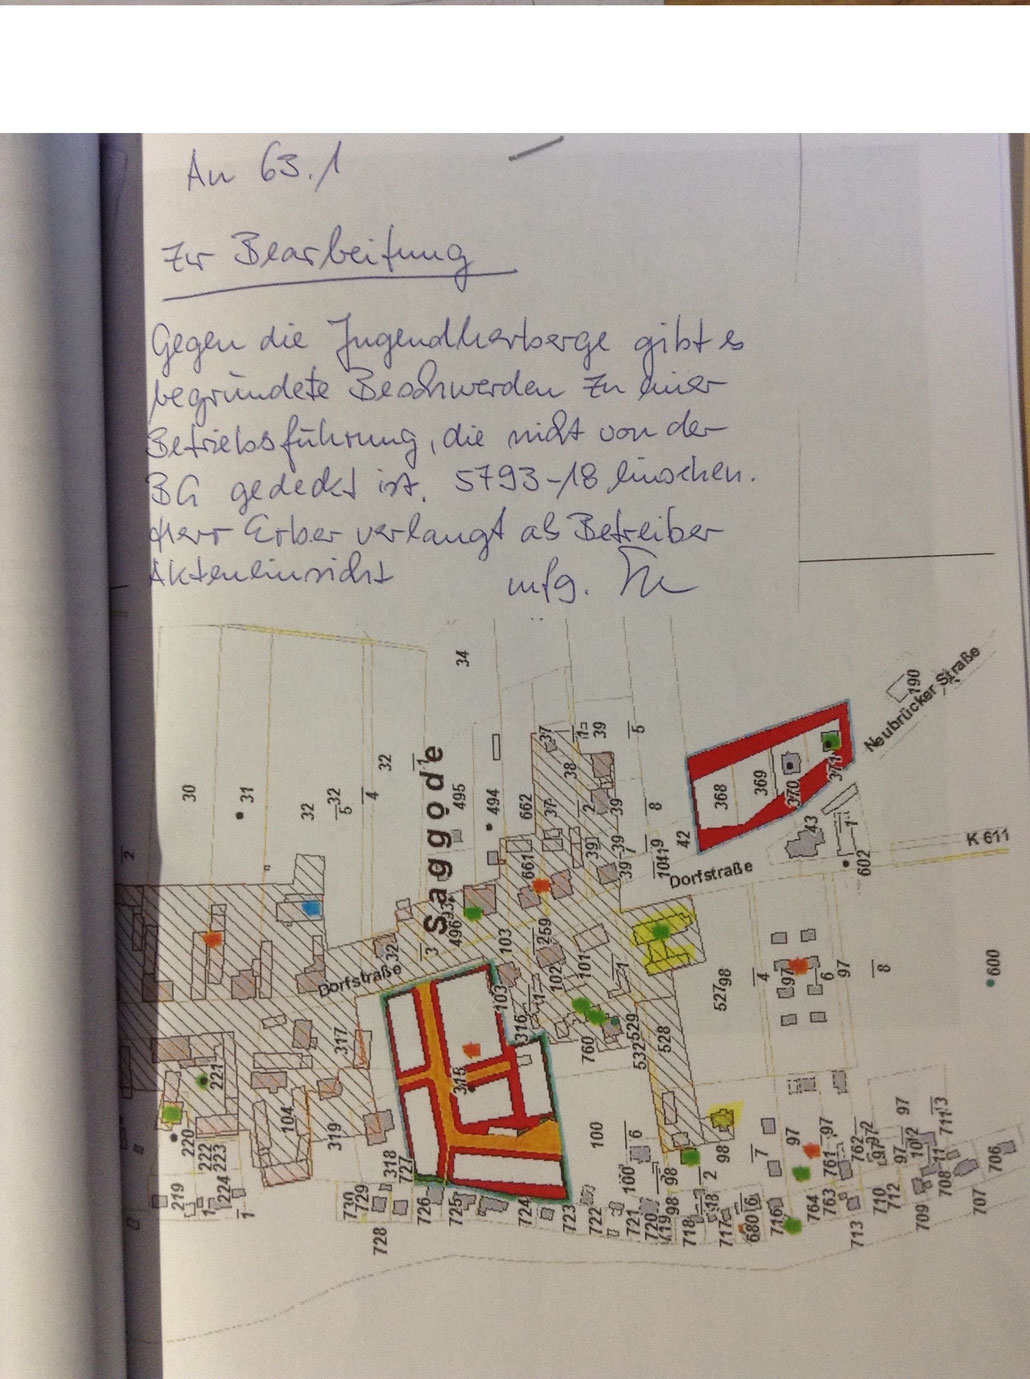 An 63.1
Zur Bearbeitung
Gegen die Jugendherberge gibt es
begründete Beschwerden zu einer
Betriebsführung, die nicht von der
BG gedeckt ist. 5793-18 einsehen.
Herr Erber verlangt als Betreiber
Akteneinsicht mfg.
34
190
Neubrücker Straße
30
31
32
32
5
4
32
1
Saggode
495
494
662
37
38
37
2
39
39
5
8
368
369
370
371
42
43
1
602
K 611
Dorfstraße
2
661
39
39
39
7
496
3
32
Dorfstraße
103
259
102
101
103
1
316
1
760
529
532
528
527
98
4
97
6
97
8
600
317
315
221
220
222
223
224
219
1
1
104
319
318
727
730
729
728
726
725
724
723
722
721
720
719
718
717
680
716
100
100
6
98
98
2
98
7
97
97
761
762
763
764
97
2
97
97
10
2
711
3
710
712
713
709
708
707
706